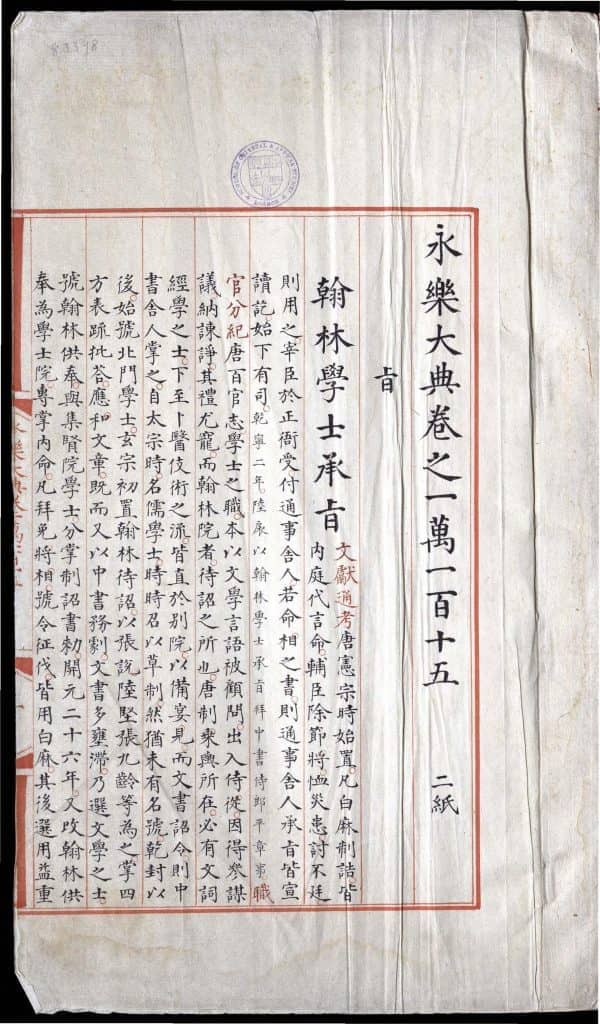 永樂大典卷之一萬一百十五 二紙
旨
翰林學士承旨
文獻通考唐憲宗時始置凡白麻制誥皆
內庭代言命輔臣除節將恤災患討不廷
則用之宰臣於正衙受付通事舍人若命相之書則通事舍人承旨皆宣
讀訖始下有司乾寧二年陸扆以翰林學士承旨拜中書侍郎平章事職
官分紀唐百官志學士之職本以文學言語被顧問出入侍從因得參謀
議納諫諍其禮尤寵而翰林院者待詔之所也唐制乘輿所在必有文詞
經學之士下至卜醫伎術之流皆直於別院以備宴見而文書詔令則中
書舍人掌之自太宗時名儒學士時時召以草制然猶未有名號乾封以
後始號北門學士玄宗初置翰林待詔以張說陸堅張九齡等為之掌四
方表疏批荅應和文章既而又以中書務劇文書多壅滯乃選文學之士
號翰林供奉與集賢院學士分掌制詔書勑開元二十六年又改翰林供
奉為學士院專掌內命凡拜免將相號令征伐皆用白麻其後選用益重